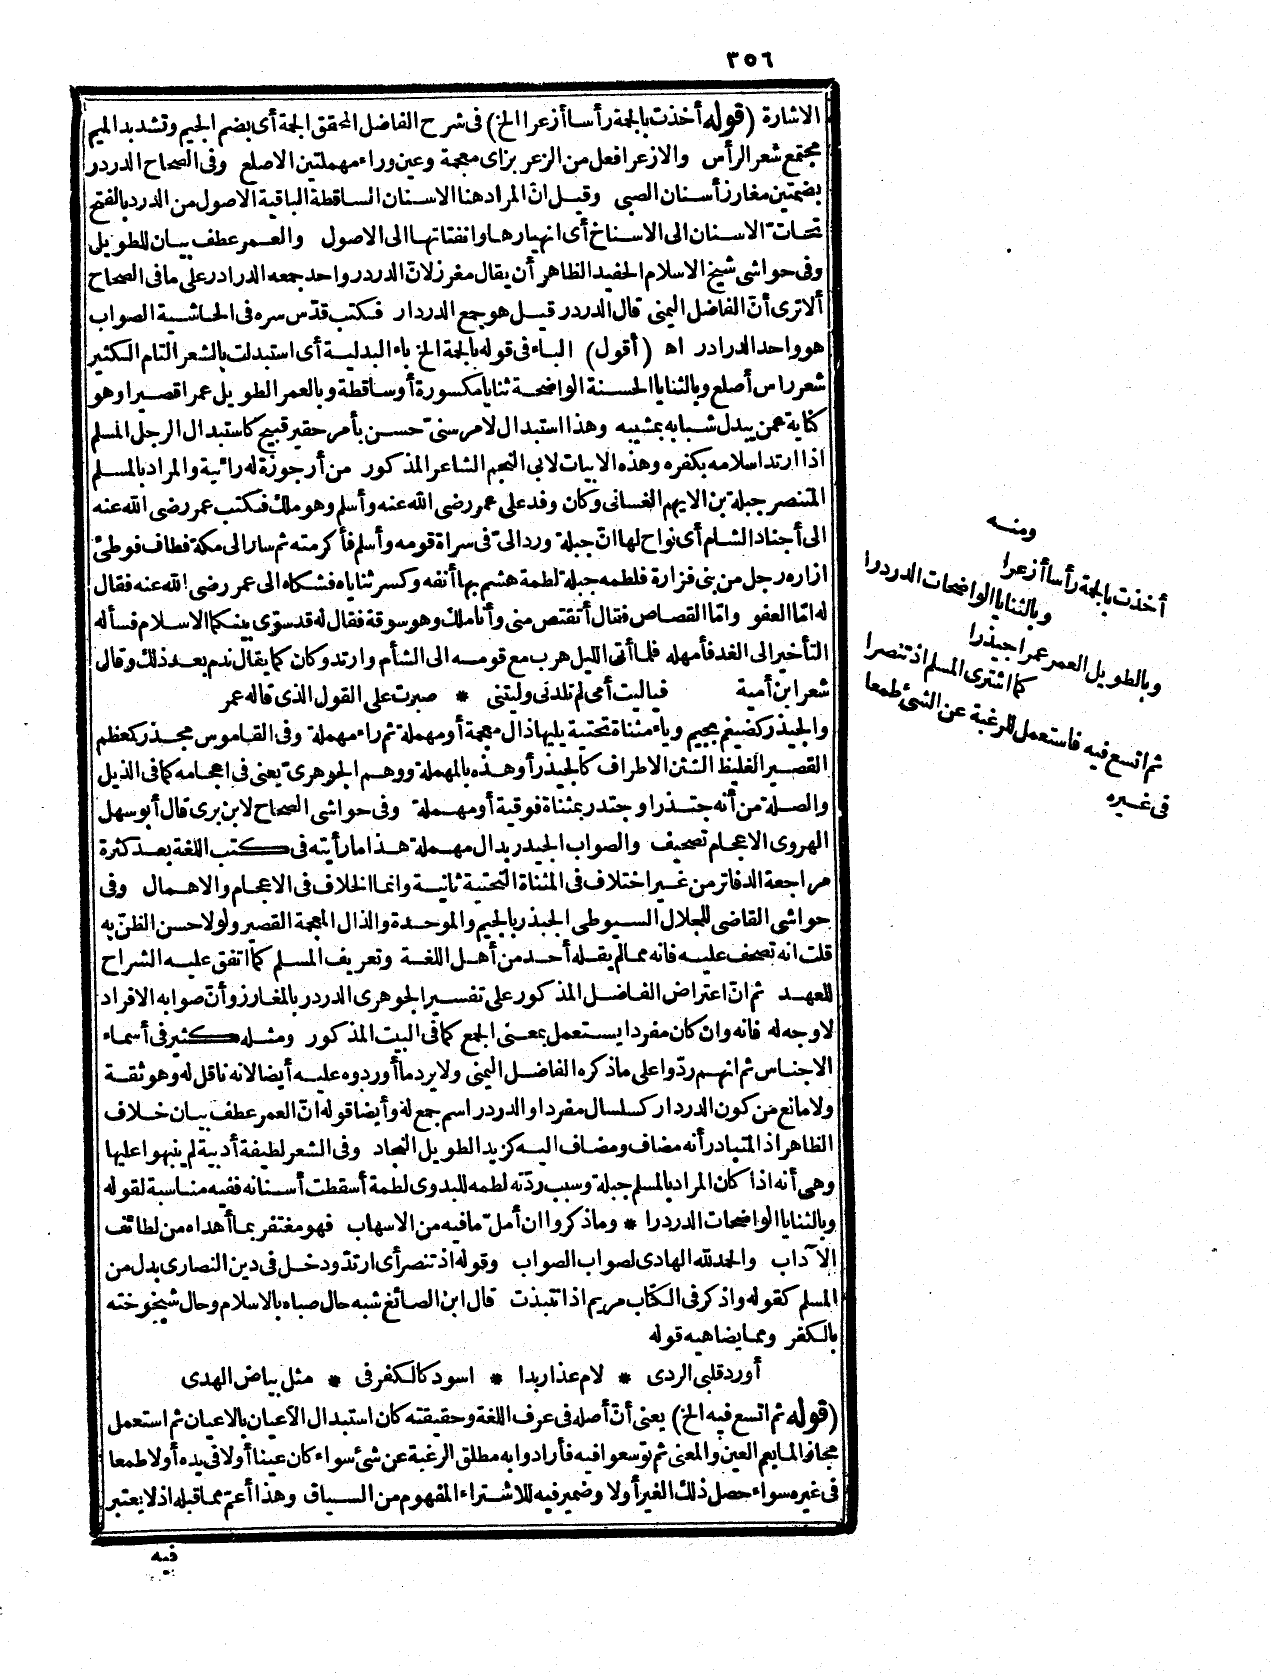 ٣٥٦
الاشارة (قوله أخذت بالجمة رأسا أزعرا الخ) فى شرح الفاضل المحقق الجمة أى بضم الجيم وتشديد الميم
مجتمع شعر الرأس والازعر افعل من الزعر بزاى معجمة وعين وراء مهملتين الاصلع وفى الصحاح الدردر
بضمتين مغارز أسنان الصبى وقيل انّ المراد هنا الاسنان الساقطة الباقية الاصول من الدرد بالفتح
تحات الاسنان الى الاسناخ أى انهيارها وانفتاتها الى الاصول والعمر عطف بيان للطويل
وفى حواشى شيخ الاسلام الحفيد الظاهر أن يقال مغرز لانّ الدردر واحد جمعه الدرادر على ما فى الصحاح
ألا ترى أنّ الفاضل اليمنى قال الدردر قيل هو جمع الدردار فكتب قدّس سره فى الحاشية الصواب
هو واحد الدرادر اه (أقول) الباء فى قوله بالجمة الخ باء البدلية أى استبدلت بالشعر التام الكثير
شعر راس أصلع وبالثنايا الحسنة الواضحة ثنايا مكسورة أو ساقطة وبالعمر الطويل عمرا قصيرا وهو
كناية عمن يبدل شبابه بمشيبه وهذا استبدال لامر سنىّ حسن بأمر حقير قبيح كاستبدال الرجل المسلم
اذا ارتد اسلامه بكفره وهذه الابيات لابى النجم الشاعر المذكور من أرجوزة له رائية والمراد بالمسلم
المتنصر جبلة بن الايهم الغسانى وكان وفد على عمر رضى الله عنه وأسلم وهو ملك فكتب عمر رضى الله عنه
الى أجناد الشام أى نواح لها انّ جبلة ورد الىّ فى سراة قومه وأسلم فأكرمته ثم سار الى مكة فطاف فوطئ
ازاره رجل من بنى فزارة فلطمه جبلة لطمة هشم بها أنفه وكسر ثناياه فشكاه الى عمر رضى الله عنه فقال
له امّا العفو وامّا القصاص فقال أتقتص منى وأنا ملك وهو سوقة فقال له قد سوّى بينكما الاسلام فسأله
التأخير الى الغد فأمهله فلما أتى الليل هرب مع قومه الى الشأم وارتد وكان كما يقال ندم بعد ذلك وقال
شعر ابن أمية فياليت أمى لم تلدنى وليتنى * صبرت على القول الذى قاله عمر
والجيذر كضيغم بجيم وياء مثناة تحتية يليها ذال معجمة أو مهملة ثم راء مهملة وفى القاموس مجذر كعظم
القصير الغليظ الشثن الاطراف كالجيذر أو هذه بالمهملة ووهم الجوهرىّ يعنى فى اعجامه كما فى الذيل
والصلة من أنه جتذرا وجتدر بمثناة فوقية أو مهملة وفى حواشى الصحاح لابن برى قال أبو سهل
الهروى الاعجام تصحيف والصواب الجيدر بدال مهملة هذا ما رأيته فى كتب اللغة بعد كثرة
مراجعة الدفاتر من غير اختلاف فى المثناة التحتية ثانية وانما الخلاف فى الاعجام والاهمال وفى
حواشى القاضى للجلال السيوطى الجبذر بالجيم والموحدة والذال المعجمة القصير ولولا حسن الظنّ به
قلت انه تصحف عليه فانه مما لم يقله أحد من أهل اللغة وتعريف المسلم كما اتفق عليه الشراح
للعهد ثم انّ اعتراض الفاضل المذكور على تفسير الجوهرى الدردر بالمغارز وأنّ صوابه الافراد
لا وجه له فانه وان كان مفردا يستعمل بمعنى الجمع كما فى البيت المذكور ومثله كثير فى أسماء
الاجناس ثم انهم ردّوا على ما ذكره الفاضل اليمنى ولا يرد ما أوردوه عليه أيضا لانه ناقل له وهو ثقة
ولا مانع من كون الدردار كسلسال مفردا والدردر اسم جمع له وأيضا قوله انّ العمر عطف بيان خلاف
الظاهر اذ المتبادر أنه مضاف ومضاف اليه كزيد الطويل النجاد وفى الشعر لطيفة أدبية لم ينبهوا عليها
وهى أنه اذا كان المراد بالمسلم جبلة وسبب ردّته لطمه للبدوى لطمة أسقطت أسنانه ففيه مناسبة لقوله
وبالثنايا الواضحات الدردرا * وما ذكروا ان أملّ ما فيه من الاسهاب فهو مغتفر بما أهداه من لطائف
الآداب والحمد لله الهادى لصواب الصواب وقوله اذ تنصر أى ارتدّ ودخل فى دين النصارى بدل من
المسلم كقوله واذكر فى الكتاب مريم اذ انتبذت قال ابن الصائغ شبه حال صباه بالاسلام وحال شيخوخته
بالكفر ومما يضاهيه قوله
أورد قلبى الردى * لام عذار بدا * اسود كالكفر فى * مثل بياض الهدى
(قوله ثم اتسع فيه الخ) يعنى أنّ أصله فى عرف اللغة وحقيقته كان استبدال الاعيان بالاعيان ثم استعمل
مجازا لما يعم العين والمعنى ثم توسعوا فيه فأرادوا به مطلق الرغبة عن شئ سواء كان عينا أولا فى يده أولا طمعا
فى غيره سواء حصل ذلك الغير أولا وضمير فيه للاشتراء المفهوم من السياق وهذا أعمّ مما قبله اذ لا يعتبر
فيه
ومنه
أخذت بالجمة رأسا أزعرا
وبالثنايا الواضحات الدردرا
وبالطويل العمر عمرا جيذرا
كما اشترى المسلم اذ تنصرا
ثم اتسع فيه فاستعمل للرغبة عن الشئ طمعا
فى غيره